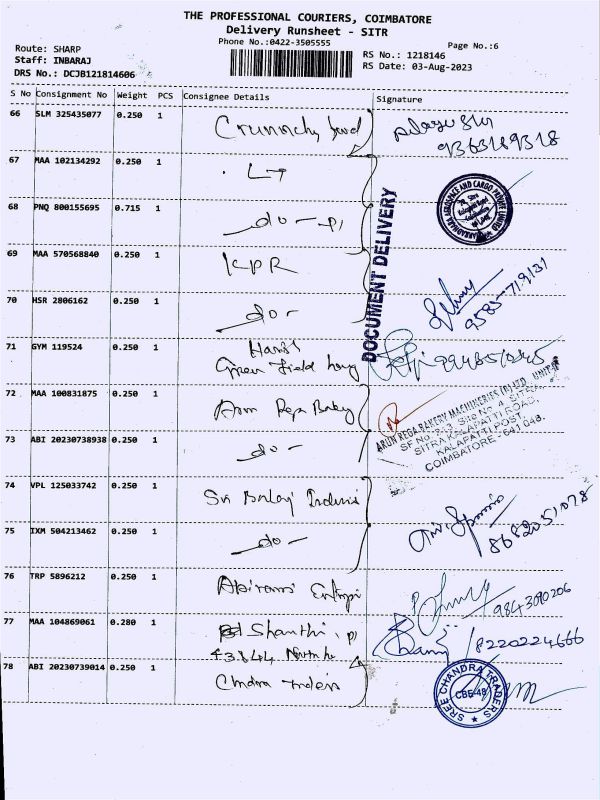 THE PROFESSIONAL COURIERS, COIMBATORE
Delivery Runsheet - SITR
Phone No.:0422-3505555
Page No.:6
Route: SHARP
Staff: INBARAJ
DRS No.: DCJB121814606
RS No.: 1218146
RS Date: 03-Aug-2023
S No Consignment No Weight PCS Consignee Details Signature
66 SLM 325435077 0.250 1 Crunnchy
9363189318
67 MAA 102134292 0.250 1 LT
68 PNQ 800155695 0.715 1 -do-
DOCUMENT DELIVERY
69 MAA 570568840 0.250 1 KPR
70 HSR 2806162 0.250 1 -do-
9585-719131
71 GYM 119524 0.250 1
Green Field
72 MAA 100831875 0.250 1 Arun Rega Bakey
ARUN REGA BAKERY MACHINERIES (P) LTD., UNIT
SF No. Site No 4, SITRA,
SITRA KALAPATTI ROAD,
KALAPATTI POST,
COIMBATORE - 641 048.
73 ABI 20230738938 0.250 1 -do-
74 VPL 125033742 0.250 1 Sri Balaji
8682051078
75 IXM 504213462 0.250 1 -do-
76 TRP 5896212 0.250 1 Abirami
9843090206
77 MAA 104869061 0.280 1 Shanthi
8220224666
43844
78 ABI 20230739014 0.250 1 Chndra Traders
SREE CHANDRA TRADERS
CBE-48